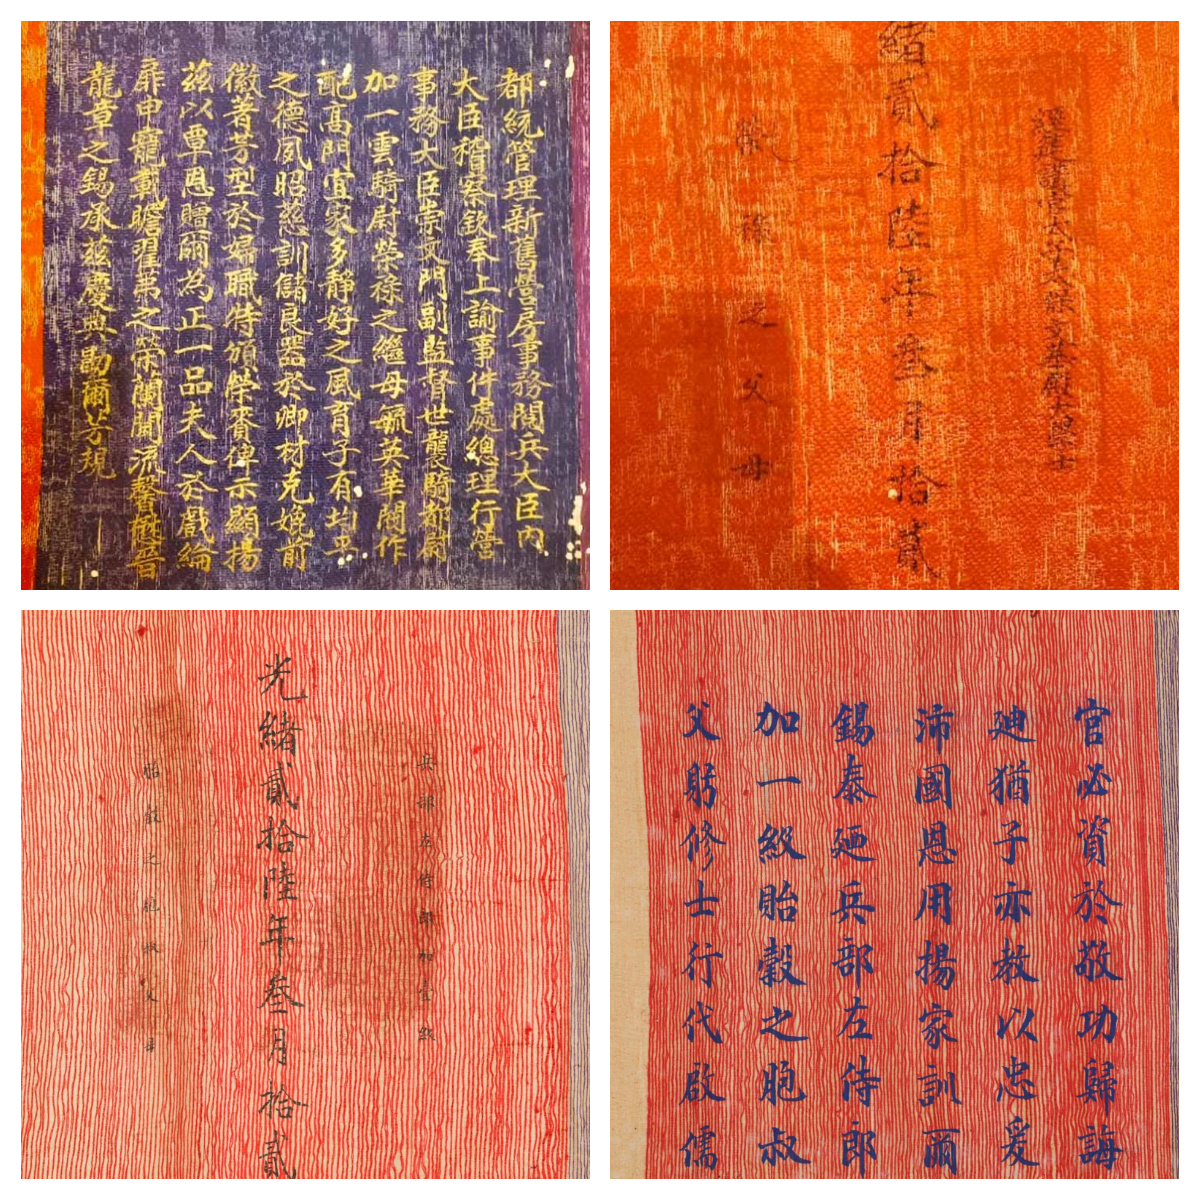 都統管理新舊營房事務閱兵大臣內
大臣稽察欽奉上諭事件處總理行營
事務大臣崇文門副監督世襲騎都尉
加一雲騎尉榮祿之繼母毓英華閥作
配高門宜家多靜好之風育子有均平
之德夙昭慈訓儲良器於卿材克娩前
徽著芳型於婦職特頒榮賚俾示顯揚
茲以覃恩贈爾為正一品夫人於戲綸
扉申寵載瞻翟茀之榮蘭閫流馨晉
龍章之錫承茲慶典勖爾芳規
經筵講官太子太保文華殿大學士
緒貳拾陸年叁月拾貳
榮祿之父母
兵部左侍郎加壹級
光緒貳拾陸年叁月拾貳
貽穀之胞叔父母
官必資於敬功歸誨
迪猶子亦教以忠爰
沛國恩用揚家訓爾
錫泰廼兵部左侍郎
加一級貽穀之胞叔
父躬修士行代啟儒